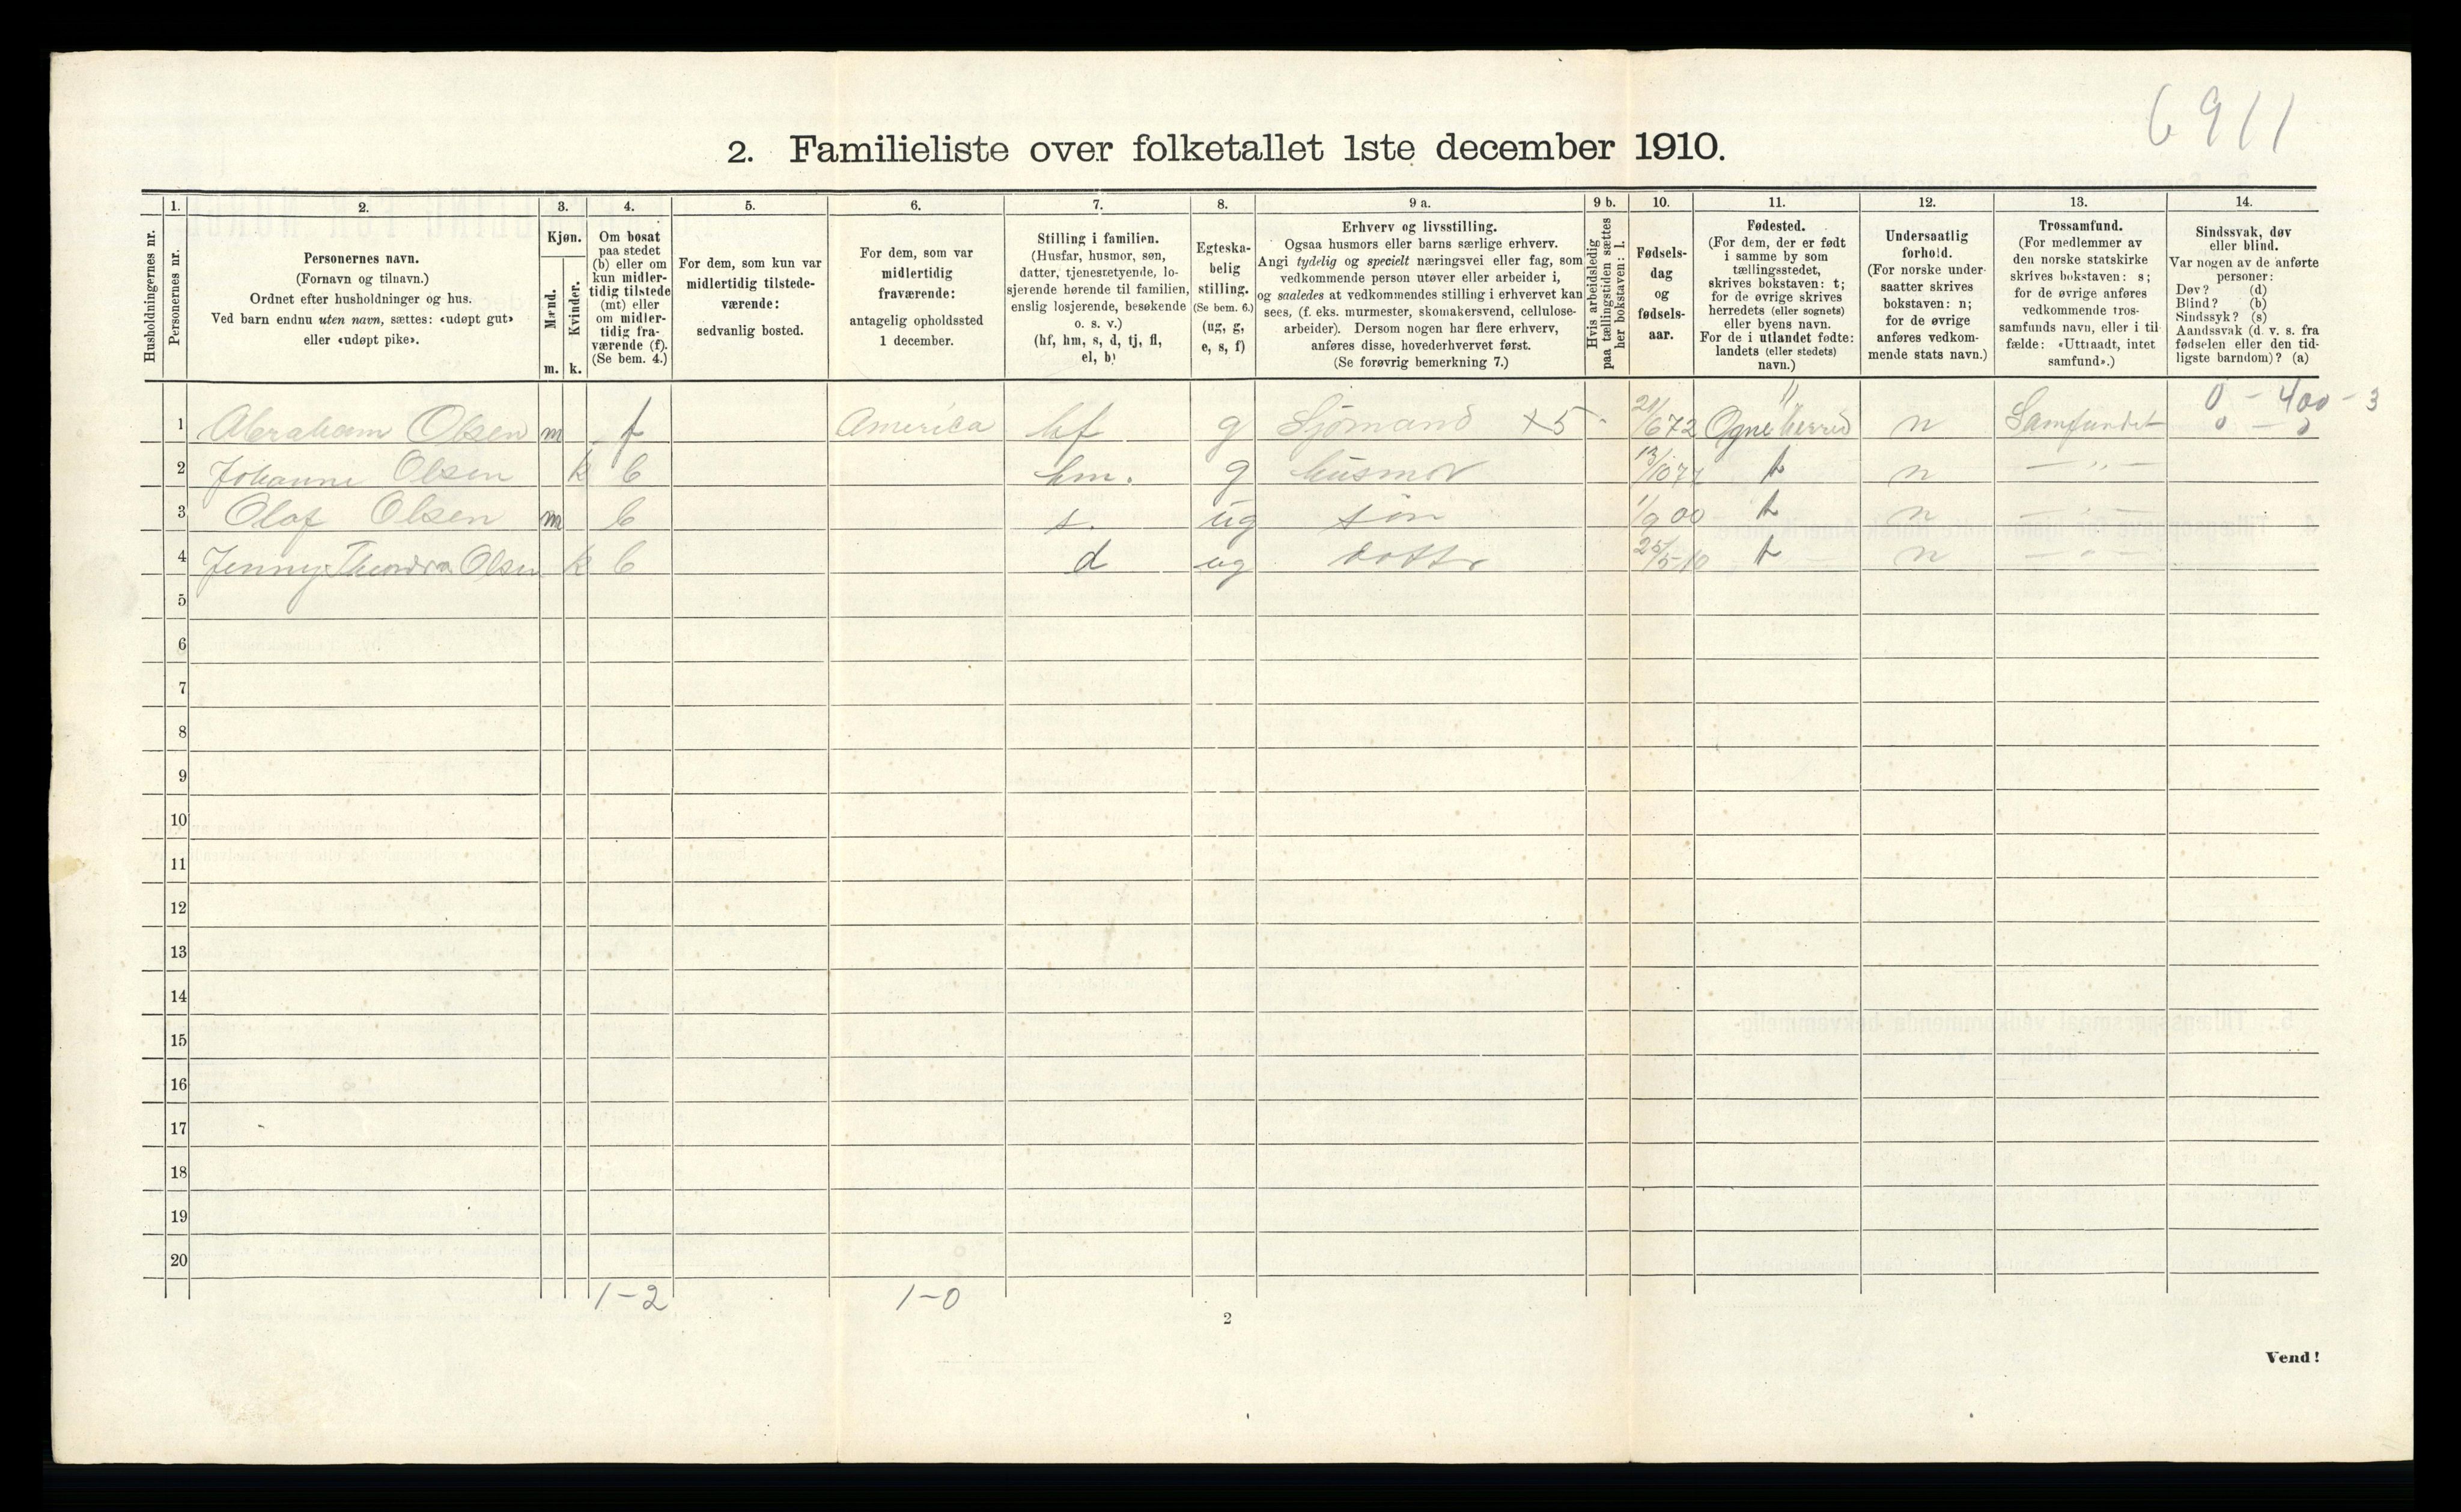 6911
2. Familieliste over folketallet 1ste december 1910.
Husholdningernes nr.
1.
Personernes nr.
2.
Personernes navn.
(Fornavn og tilnavn.)
Ordnet efter husholdninger og hus.
Ved barn endnu uten navn, sættes: «udøpt gut»
eller «udøpt pike».
3.
Kjøn.
Mænd.
Kvinder.
m. k.
4.
Om bosat
paa stedet
(b) eller om
kun midler-
tidig tilstede
(mt) eller
om midler-
tidig fra-
værende (f).
(Se bem. 4.)
5.
For dem, som kun var
midlertidig tilstede-
værende:
sedvanlig bosted.
6.
For dem, som var
midlertidig
fraværende:
antagelig opholdssted
1 december.
7.
Stilling i familien.
(Husfar, husmor, søn,
datter, tjenestetyende, lo-
sjerende hørende til familien,
enslig losjerende, besøkende
o. s. v.)
(hf, hm, s, d, tj, fl,
el, b)
8.
Egteska-
belig
stilling.
(Se bem. 6.)
(ug, g,
e, s, f)
9 a.
Erhverv og livsstilling.
Ogsaa husmors eller barns særlige erhverv.
Angi tydelig og specielt næringsvei eller fag, som
vedkommende person utøver eller arbeider i,
og saaledes at vedkommendes stilling i erhvervet kan
sees, (f. eks. murmester, skomakersvend, cellulose-
arbeider). Dersom nogen har flere erhverv,
anføres disse, hovederhvervet først.
(Se forøvrig bemerkning 7.)
9 b.
Hvis arbeidsledig
paa tællingstiden sættes
her bokstaven: l.
10.
Fødsels-
dag
og
fødsels-
aar.
11.
Fødested.
(For dem, der er født
i samme by som
tællingsstedet,
skrives bokstaven: t;
for de øvrige skrives
herredets (eller sognets)
eller byens navn.
For de i utlandet fødte:
landets (eller stedets)
navn.)
12.
Undersaatlig
forhold.
(For norske under-
saatter skrives
bokstaven: n;
for de øvrige
anføres vedkom-
mende stats navn.)
13.
Trossamfund.
(For medlemmer av
den norske statskirke
skrives bokstaven: s;
for de øvrige anføres
vedkommende tros-
samfunds navn, eller i til-
fælde: «Uttraadt, intet
samfund».)
14.
Sindssvak, døv
eller blind.
Var nogen av de anførte
personer:
Døv? (d)
Blind? (b)
Sindssyk? (s)
Aandssvak (d. v. s. fra
fødselen eller den tid-
ligste barndom)? (a)
0 - 400 - 3
1 Abraham Olsen m f America hf g Sjømand X5 - 21/6 72 Ogne herred n Samfundet 0 - 0
2 Johanne Olsen k b hm. g husmor 13/10 77 t n — „ —
3 Olaf Olsen m b s. ug søn 1/9 00 t n — „ —
4 Jenny Theodra Olsen k b d ug datter 25/5-10 t n — „ —
5
6
7
8
9
10
11
12
13
14
15
16
17
18
19
20
1-2 1-0
2
Vend!